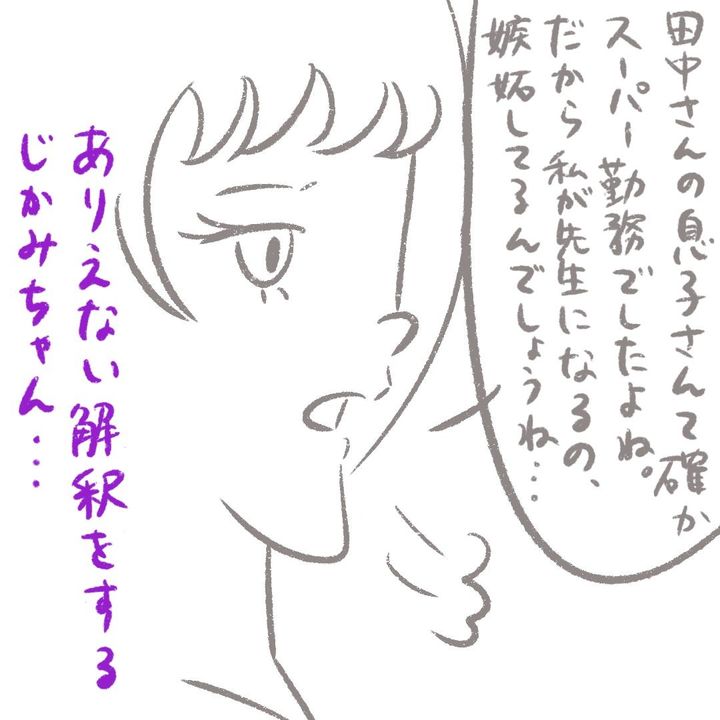 田中さんの息子さんて確か
スーパー勤務でしたよね。
だから私が先生になるの、
嫉妬してるんでしょうね…
ありえない解釈をする
じかみちゃん…